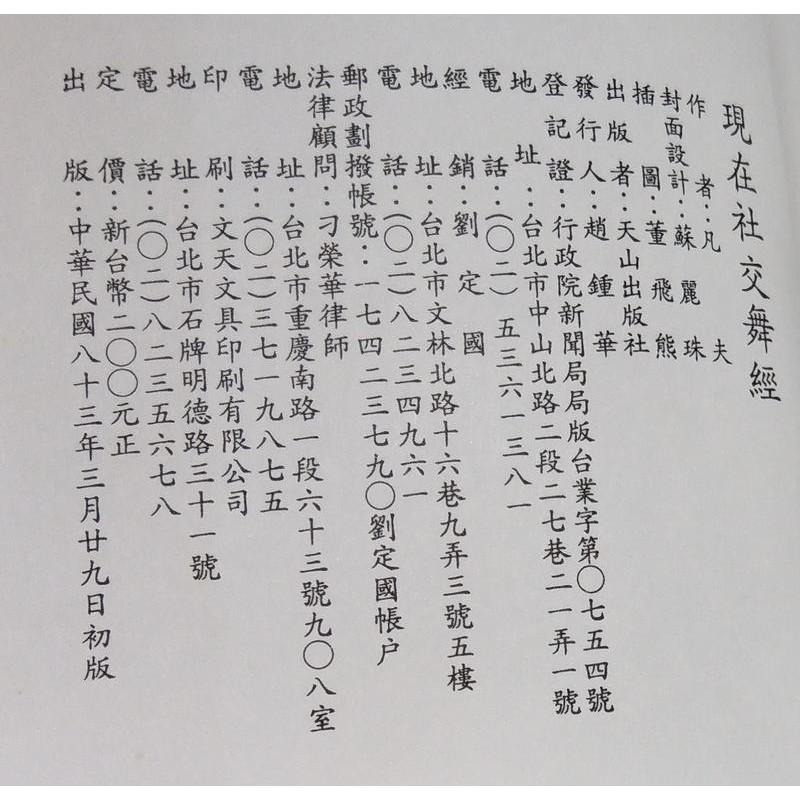 現在社交舞經
作者：凡夫
封面設計：蘇麗珠
插圖：董飛熊
出版者：天山出版社
發行人：趙鍾華
登記證：行政院新聞局局版台業字第〇七五四號
地址：台北市中山北路二段二七巷二一弄一號
電話：（〇二）五三六一三八一
經銷：劉定國
地址：台北市文林北路十六巷九弄三號五樓
電話：（〇二）八二三四九六一
郵政劃撥帳號：一七四二三七九〇劉定國帳户
法律顧問：刁榮華律師
地址：台北市重慶南路一段六十三號九〇八室
電話：（〇二）三七一九八七五
印刷：文天文具印刷有限公司
地址：台北市石牌明德路三十一號
電話：（〇二）八二三五六七八
定價：新台幣二〇〇元正
出版：中華民國八十三年三月廿九日初版